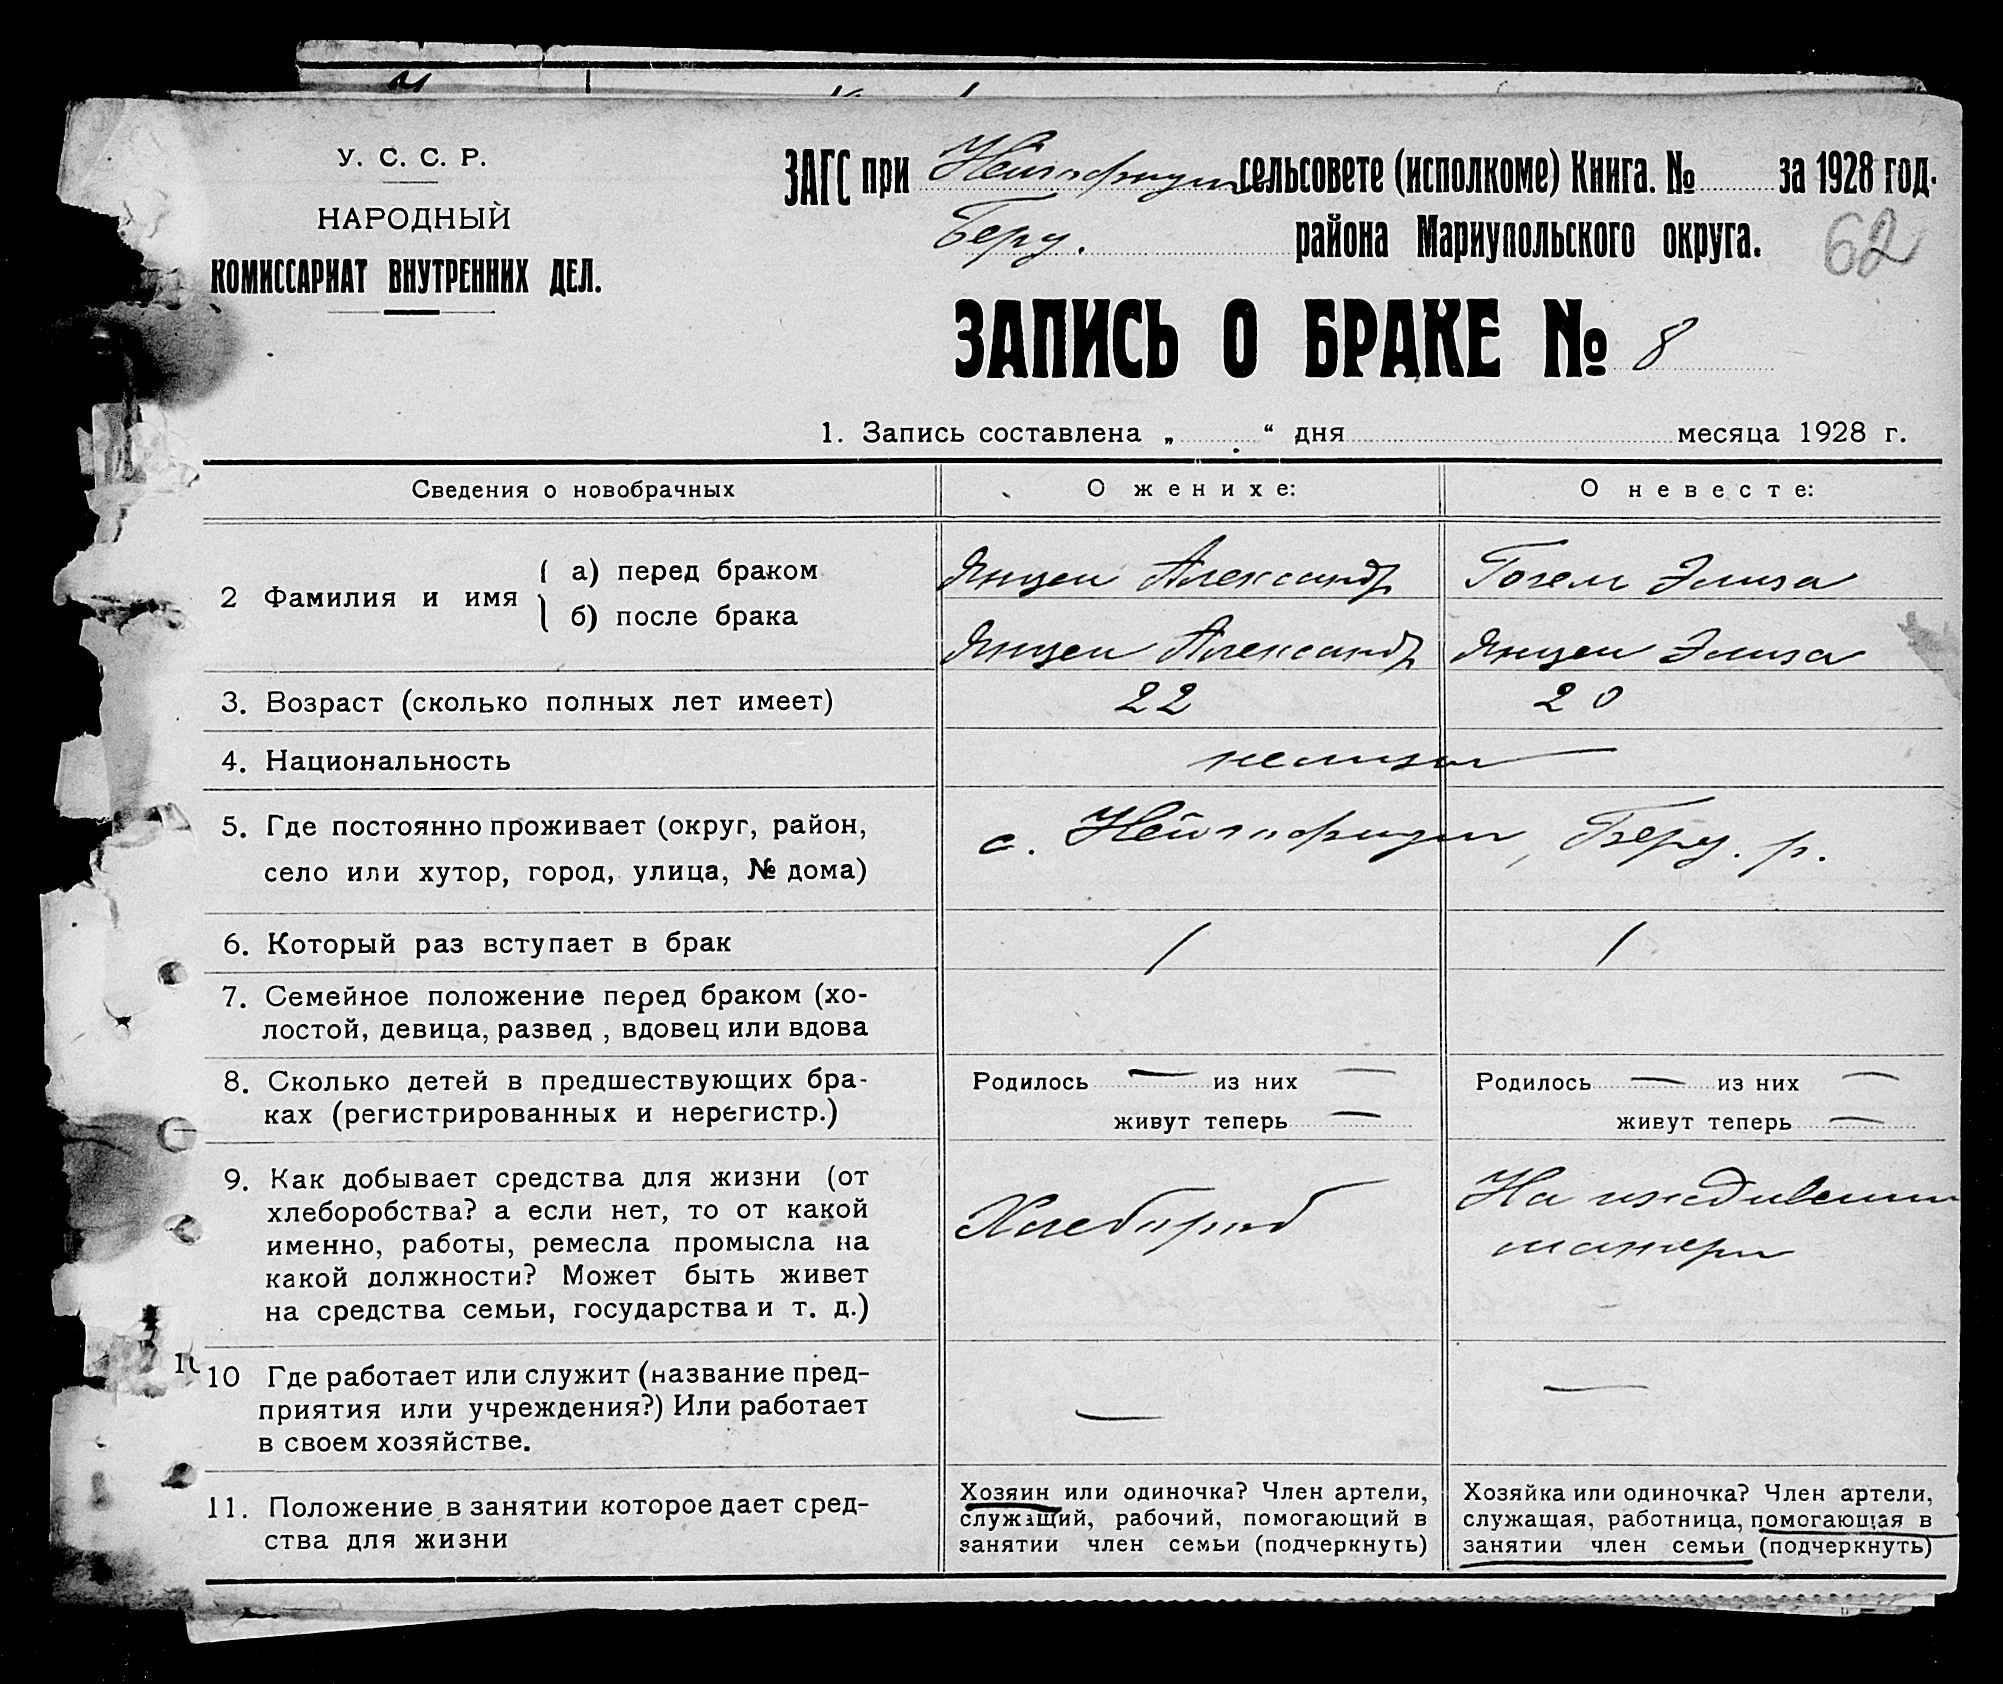 У. С. С. Р.
НАРОДНЫЙ
КОМИССАРИАТ ВНУТРЕННИХ ДЕЛ.
ЗАГС при сельсовете (исполкоме) Книга. № за 1928 год.
Беру. района Мариупольского округа.
62
ЗАПИСЬ О БРАКЕ № 8
1. Запись составлена „ “ дня месяца 1928 г.
Сведения о новобрачных О женихе: О невесте:
2 Фамилия и имя
а) перед браком Янцен Александр Гогем Элиза
б) после брака Янцен Александр Янцен Элиза
3. Возраст (сколько полных лет имеет) 22 20
4. Национальность немцы
5. Где постоянно проживает (округ, район,
село или хутор, город, улица, № дома)
с. , Беру. р.
6. Который раз вступает в брак 1 1
7. Семейное положение перед браком (хо-
лостой, девица, развед , вдовец или вдова
8. Сколько детей в предшествующих бра-
ках (регистрированных и нерегистр.)
Родилось — из них —
живут теперь —
Родилось — из них —
живут теперь —
9. Как добывает средства для жизни (от
хлеборобства? а если нет, то от какой
именно, работы, ремесла промысла на
какой должности? Может быть живет
на средства семьи, государства и т. д.)
Хлебороб
На иждивении
матери
10 Где работает или служит (название пред-
приятия или учреждения?) Или работает
в своем хозяйстве.
— —
11. Положение в занятии которое дает сред-
ства для жизни
Хозяин или одиночка? Член артели,
служащий, рабочий, помогающий в
занятии член семьи (подчеркнуть)
Хозяйка или одиночка? Член артели,
служащая, работница, помогающая в
занятии член семьи (подчеркнуть)